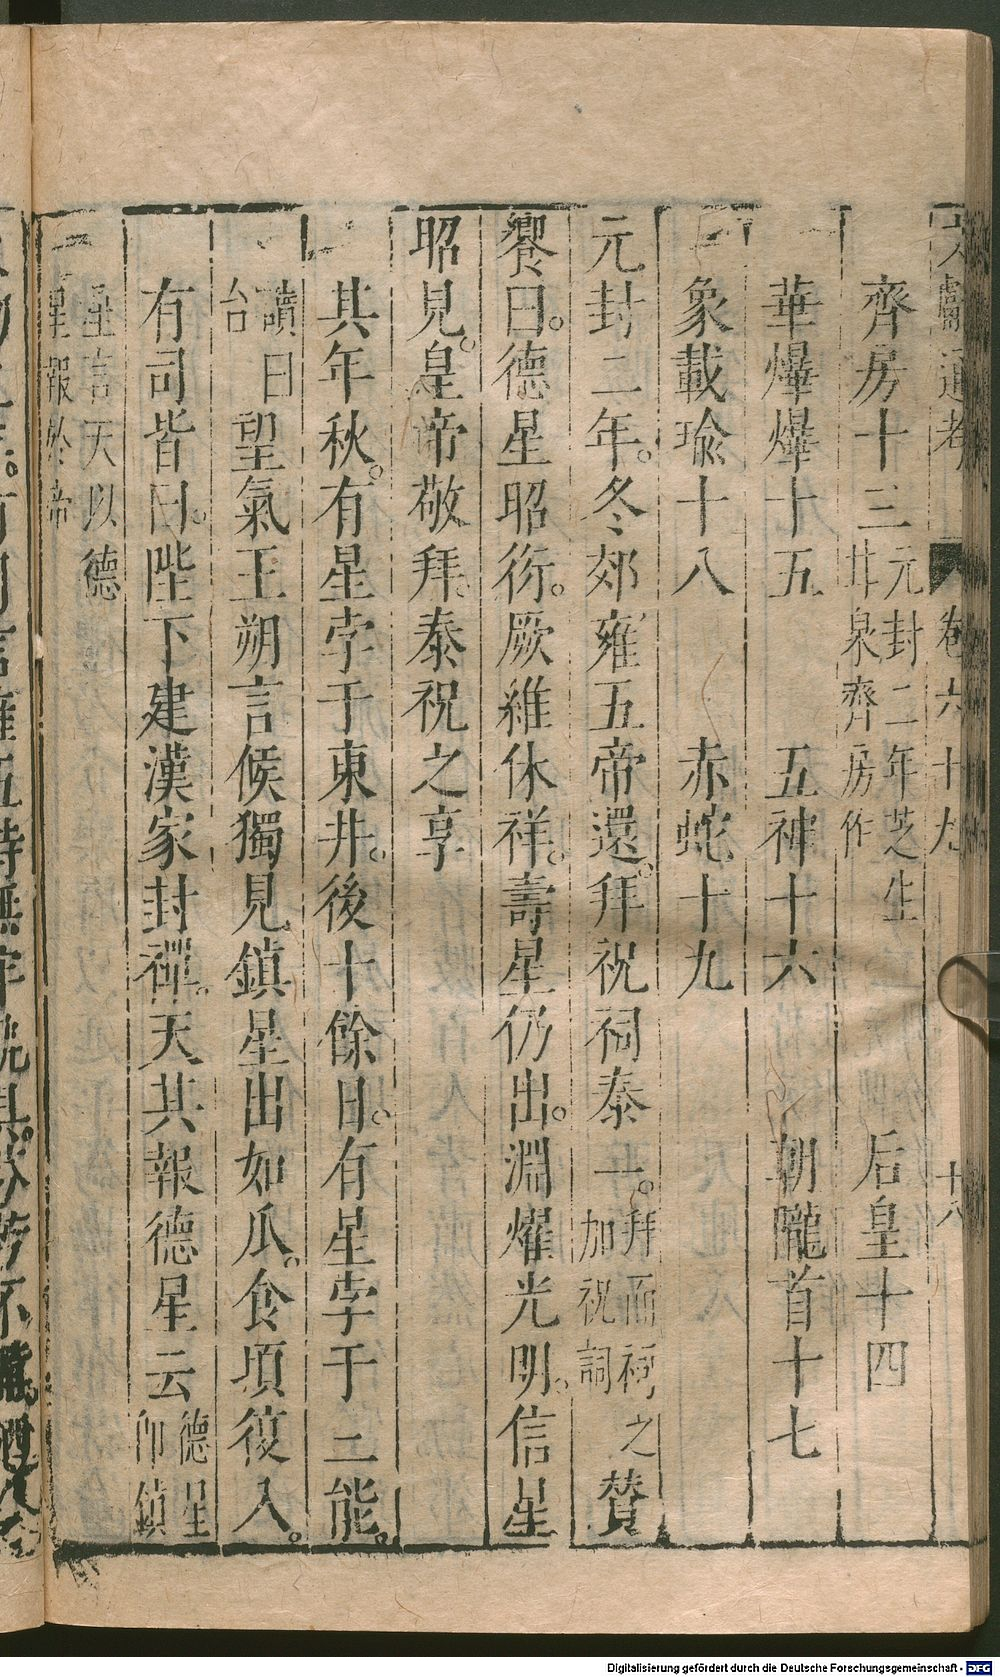 文獻通考 卷六十九 十八
齊房十三 元封二年芝生甘泉齊房作 后皇十四
華爗爗十五 五神十六 朝隴首十七
象載瑜十八 赤蛟十九
元封二年。冬郊雍五帝還。拜祝祠泰一。拜而祠之加祝詞 贊
饗曰。德星昭衍。厥維休祥。壽星仍出。淵耀光明。信星
昭見。皇帝敬拜。泰祝之享
其年秋。有星孛于東井。後十餘日。有星孛于三能。
讀曰台 望氣王朔言候獨見鎮星出如瓜。食頃復入。
有司皆曰。陛下建漢家封禪。天其報德星云 德星即鎮
星言天以德星報於帝
Digitalisierung gefördert durch die Deutsche Forschungsgemeinschaft - DFG